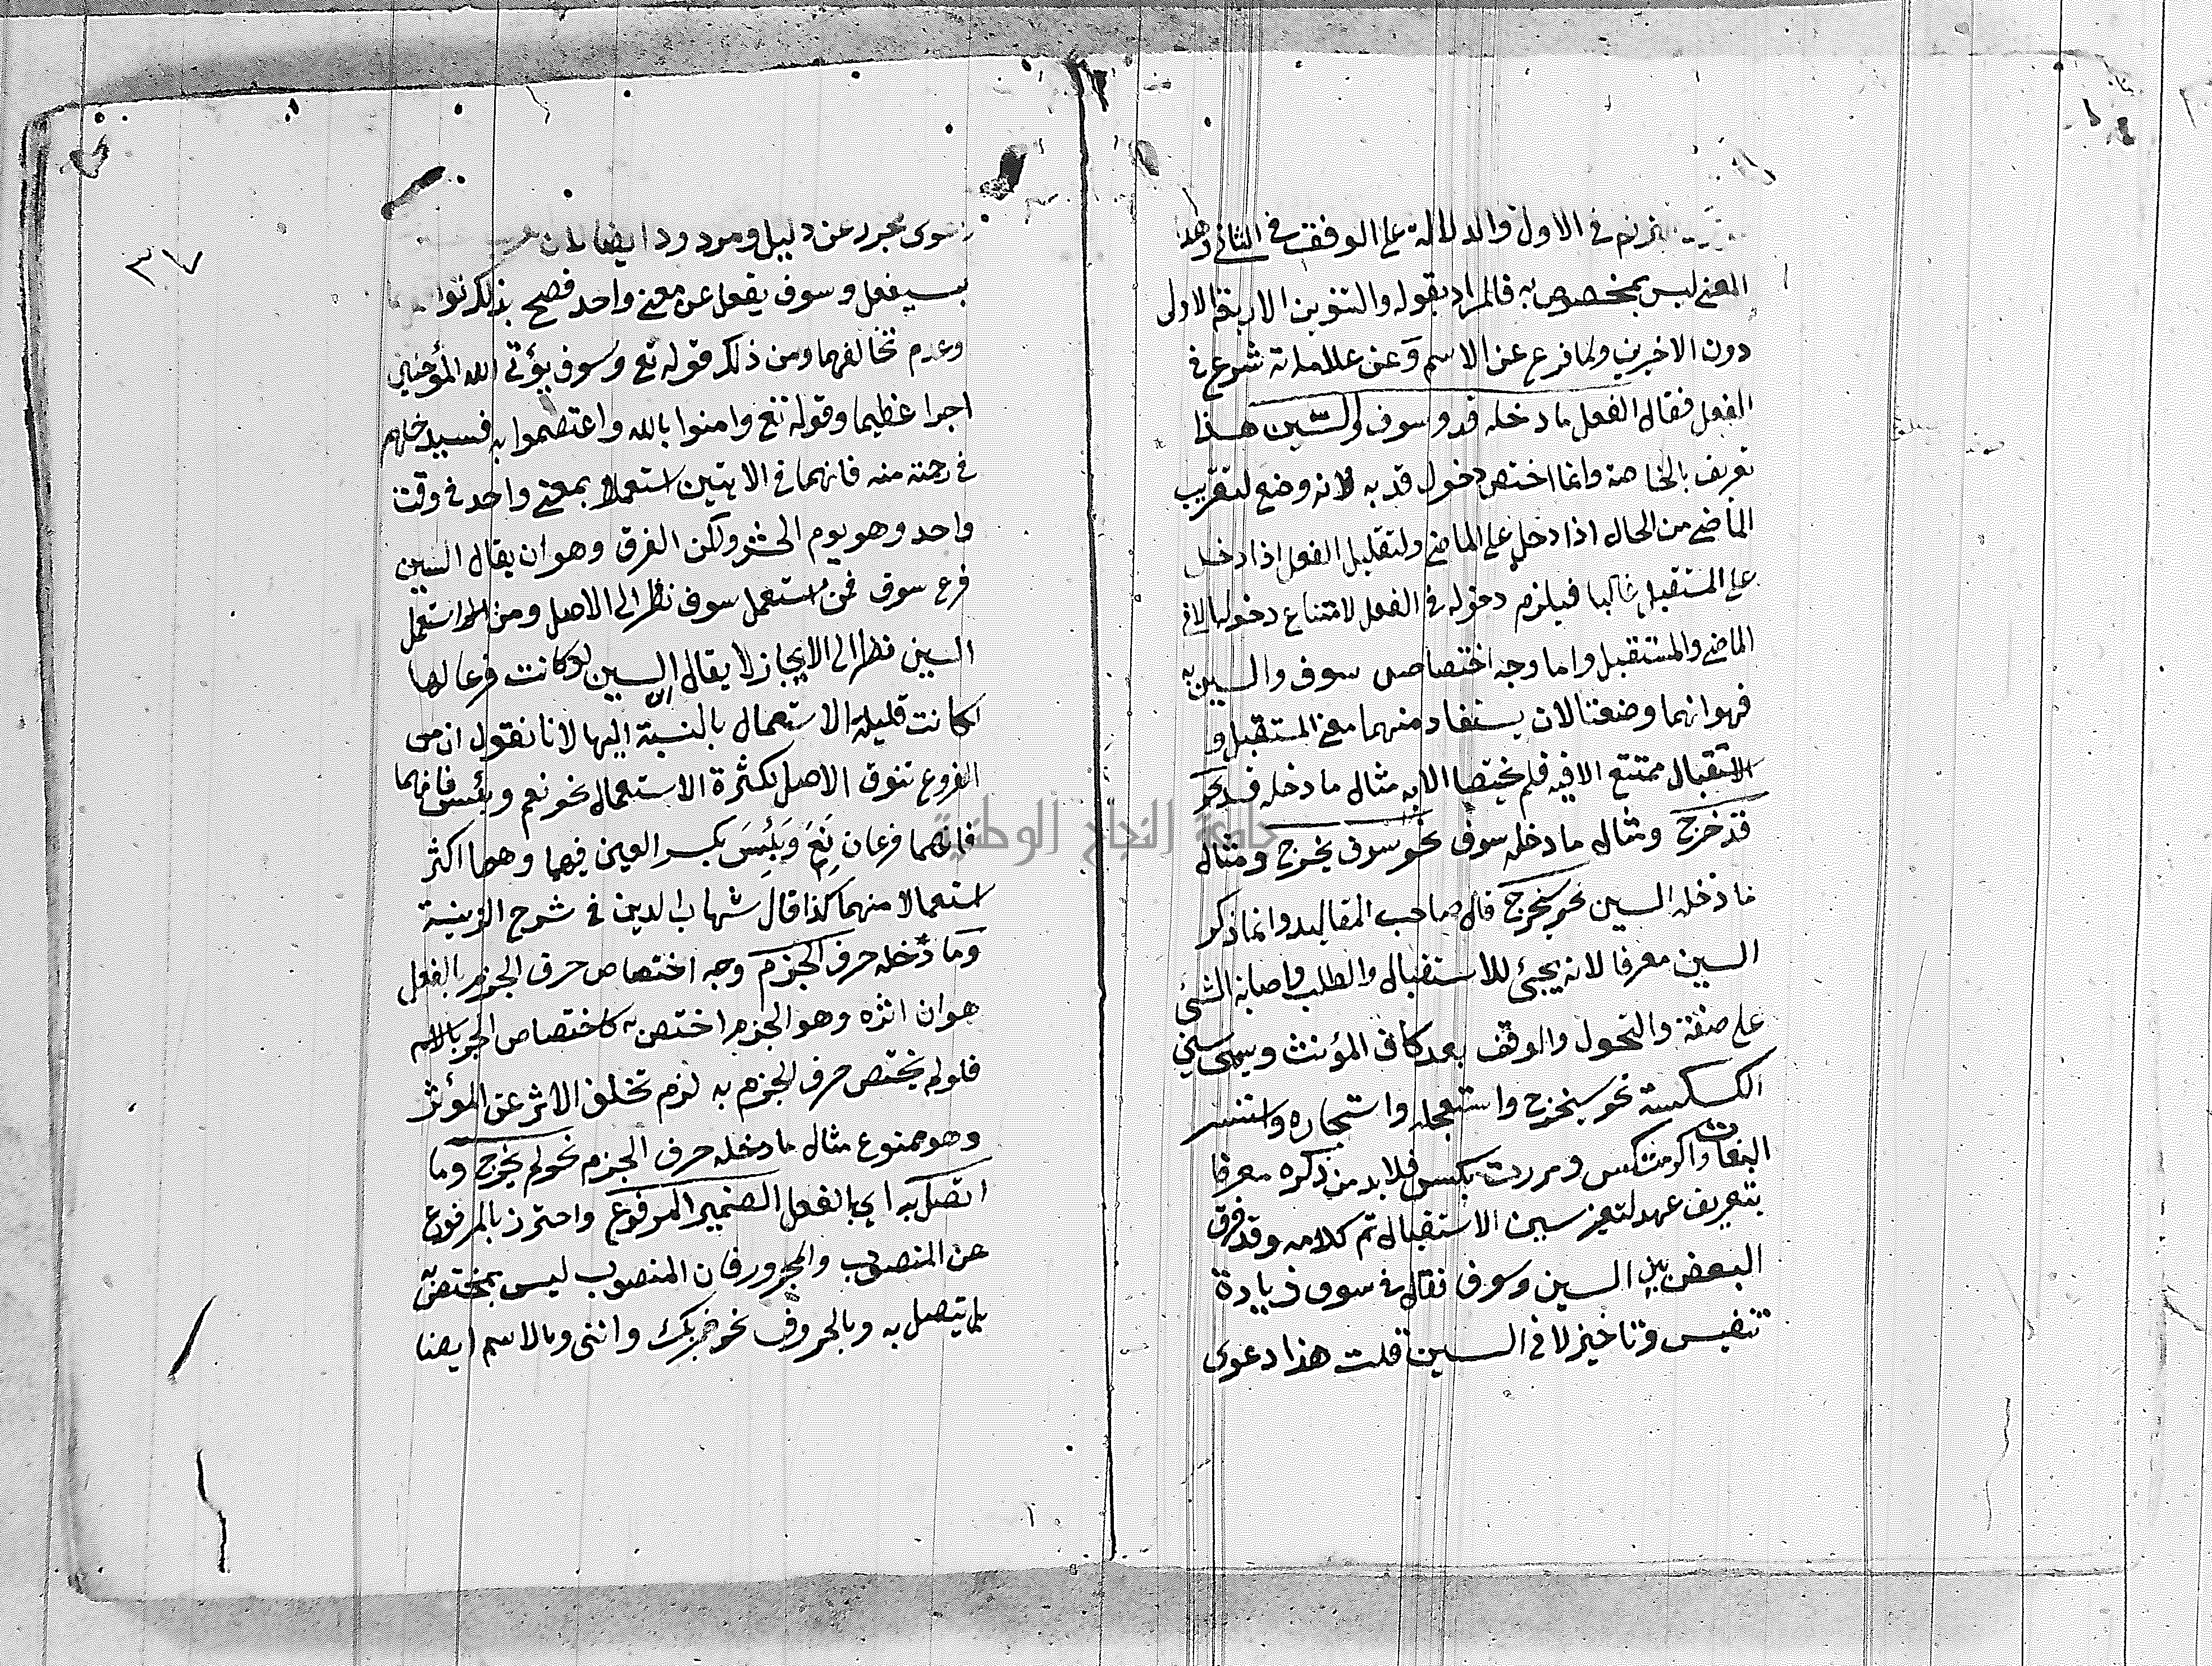 الترنم في الاول والدلالة على الوقف في الثاني وهذا
المعنى ليس بمخصوص به فالمراد بقوله والتنوين الاربعة الاولى
دون الاخيرين ولما فرغ عن الاسم وَعن علاماته شرع في
الفعل فقال الفعل ما دخله قد وسوف والسّين هذا
تعريف بالخاصة وانما اختص دخول قد به لانه وضع لتقريب
الماضي من الحال اذا دخل على الماضي ولتقليل الفعل اذا دخل
على المستقبل غالبا فيلزم دخوله في الفعل لامتناع دخولها لا في
الماضي والمستقبل واما وجه اختصاص سوف والسين به
فهو انهما وضعتا لان يستفاد منهما معنى المستقبل و
الاستقبال ممتنع الا فيه فلم يختصا الا به مثال ما دخله قد نحو
قد خرج ومثال ما دخله سوف نحو سوف يخرج ومثال
ما دخله السين نحو سيخرج قال صاحب المقاليد وانما ذكر
السين معرفا لانه يجيئ للاستقبال والطلب واصابة الشيئ
على صفة والتحول والوقف بعد كاف المؤنث ويسمى سين
الكسكسة نحو سيخرج واستعجله واستجاره واستنسر
البغاث واكرمتكس ومررت بكس فلا بد من ذكره معرفا
بتعريف عهد لتعين سين الاستقبال تم كلامه وقد فرق
البعض بين السين وسوف فقال في سوف زيادة
تنفيس وتاخير لا في السين قلت هذا دعوى
٣٧
دعوى مجرد عن دليل ومردود ايضا لان
بسيفعل وسوف يفعل عن معنى واحد فصح بذلك
وعدم تخالفهما ومن ذلك قوله تع وسوف يؤتي الله المؤمنين
اجرا عظيما وقوله تع وامنوا بالله واعتصموا به فسيدخلهم
في رحمة منه فانهما في الايتين استعملا بمعنى واحد في وقت
واحد وهو يوم الحشر ولكن الفرق وهو ان يقال السين
فرع سوف فمن استعمل سوف نظر الى الاصل ومن استعمل
السين نظر الى الايجاز لا يقال ان السين لو كانت فرعا لها
لكانت قليلة الاستعمال بالنسبة اليها لانا نقول ان من
الفروع تفوق الاصل بكثرة الاستعمال نحو نعم وبئس فانهما
فانهما فرعان نَعِمَ وَبَئِسَ بكسر العين فيهما وهما اكثر
استعمالا منهما كذا قال شهاب الدين في شرح الزينية
وَما دخله حرف الجزم وجه اختصاص حرف الجزم بالفعل
هو ان اثره وهو الجزم اختص به كاختصاص الجر بالاسم
فلو لم يختص حرف الجزم به لزم تخلف الاثر عن المؤثر
وهو ممنوع مثال ما دخله حرف الجزم نحو لم يخرج وما
اتصل به اي بالفعل الضمير المرفوع واحترز بالمرفوع
عن المنصوب والمجرور فان المنصوب ليس بمختص به
بل يتصل به وبالحروف نحو ضربك وانني وبالاسم ايضا
جامعة النجاح الوطنية